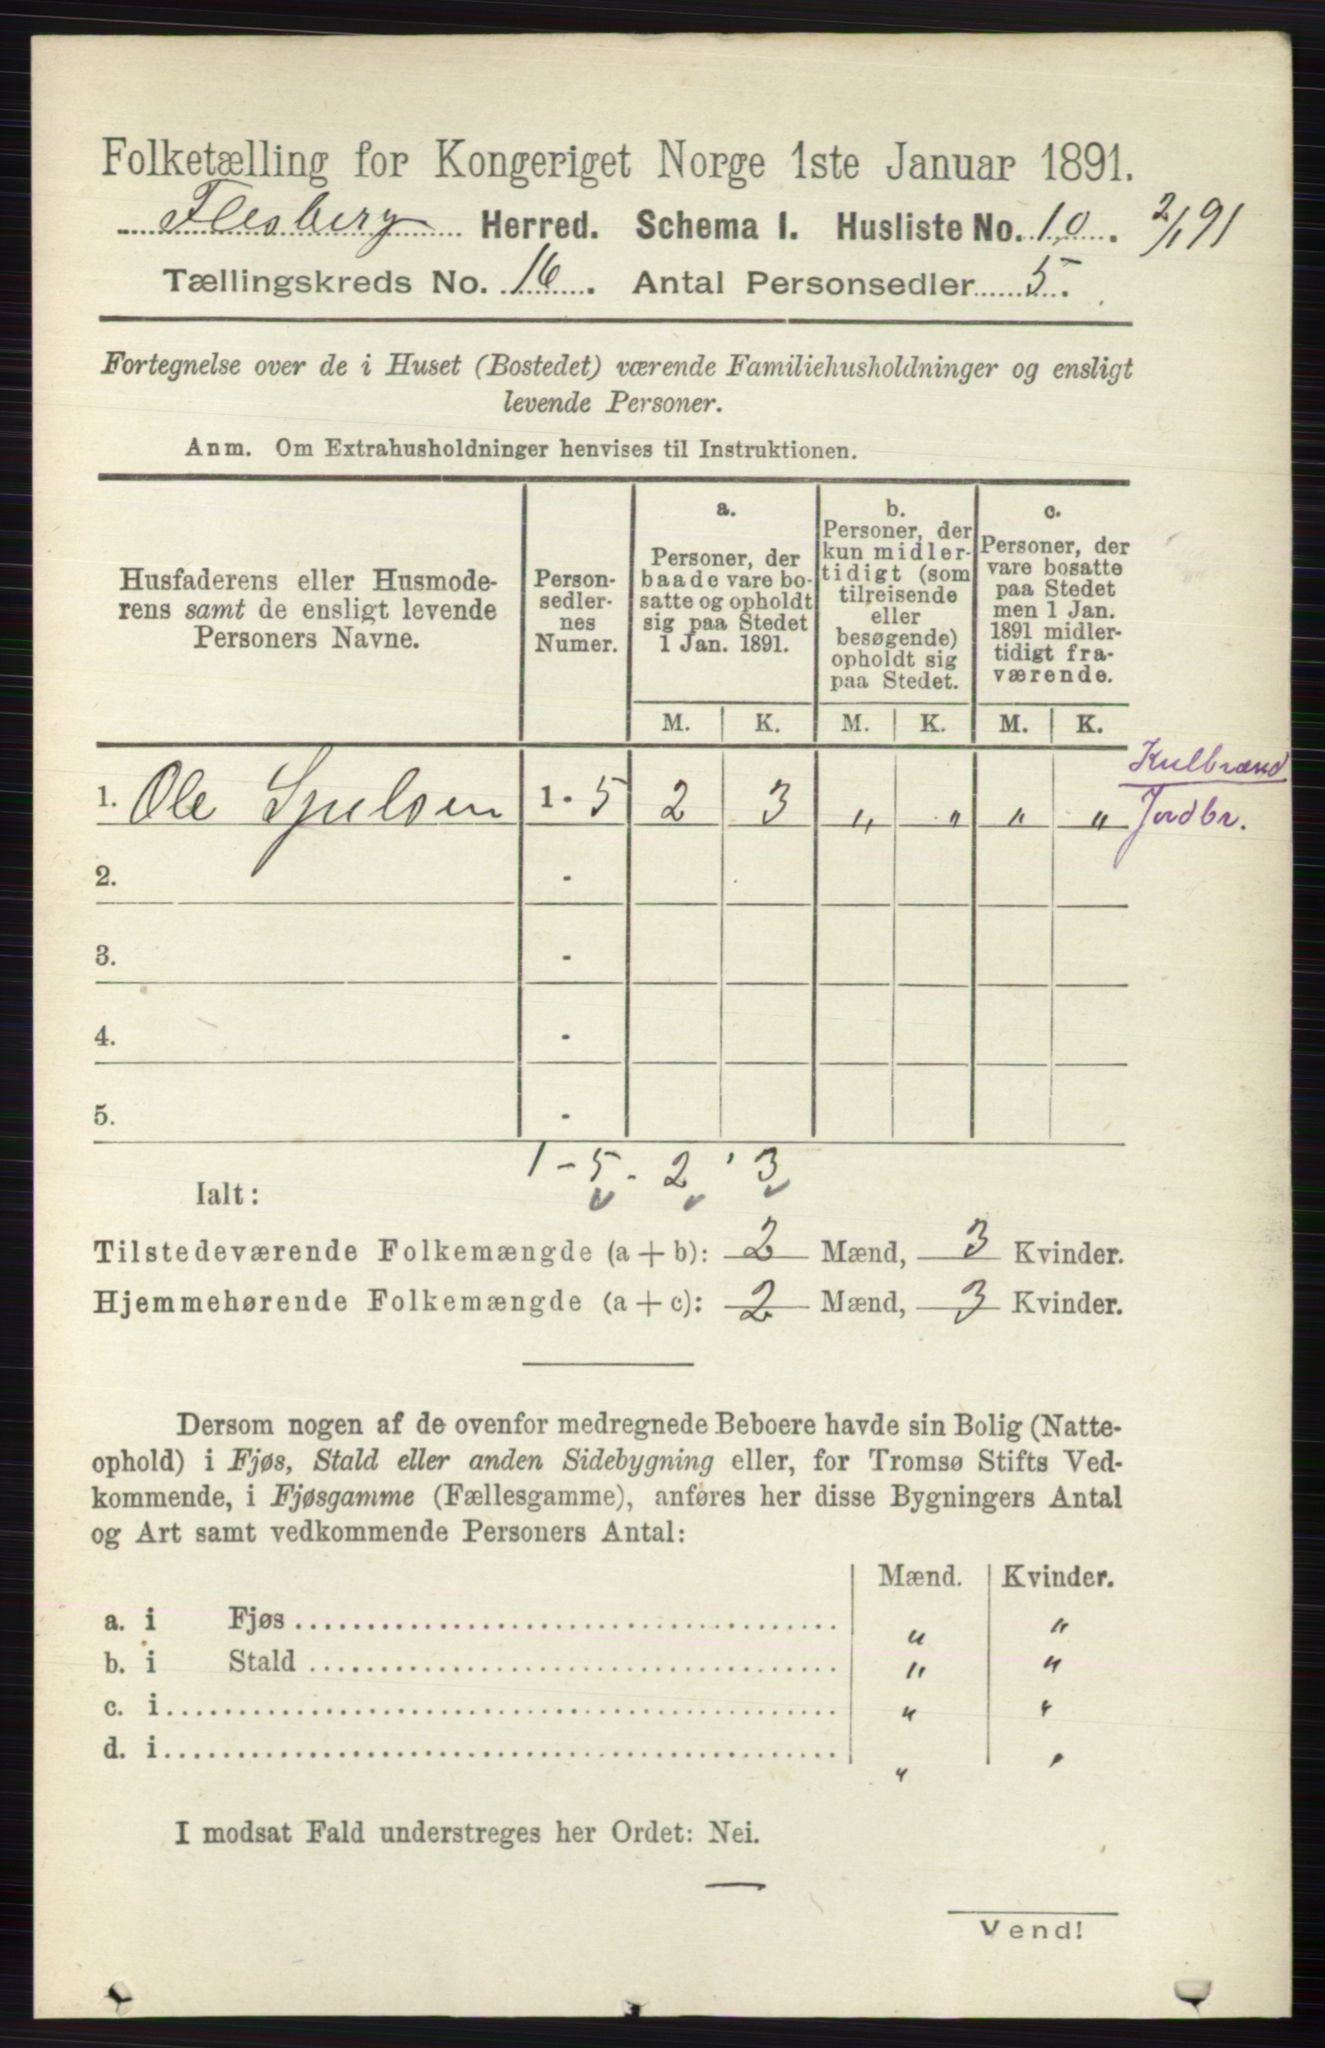 Folketælling for Kongeriget Norge 1ste Januar 1891.
Flesberg Herred. Schema I. Husliste No. 10. 2/1 91
Tællingskreds No. 16. Antal Personsedler 5.
Fortegnelse over de i Huset (Bostedet) værende Familiehusholdninger og ensligt
levende Personer.
Anm. Om Extrahusholdninger henvises til Instruktionen.
Husfaderens eller Husmode-
rens samt de ensligt levende
Personers Navne.
Person-
sedler-
nes
Numer.
a.
Personer, der
baade vare bo-
satte og opholdt
sig paa Stedet
1 Jan. 1891.
b.
Personer, der
kun midler-
tidigt (som
tilreisende
eller
besøgende)
opholdt sig
paa Stedet.
c.
Personer, der
vare bosatte
paa Stedet
men 1 Jan.
1891 midler-
tidigt fra-
værende.
M. K. M. K. M. K.
Kulbrænd
1. Ole 1 - 5 2 3 " " " " Jordbr.
2. -
3. -
4. -
5. -
1 - 5 - 2 ' 3
Ialt:
Tilstedeværende Folkemængde (a + b): 2 Mænd, 3 Kvinder.
Hjemmehørende Folkemængde (a + c): 2 Mænd, 3 Kvinder.
Dersom nogen af de ovenfor medregnede Beboere havde sin Bolig (Natte-
ophold) i Fjøs, Stald eller anden Sidebygning eller, for Tromsø Stifts Ved-
kommende, i Fjøsgamme (Fællesgamme), anføres her disse Bygningers Antal
og Art samt vedkommende Personers Antal:
Mænd. Kvinder.
a. i Fjøs " "
b. i Stald " "
c. i " "
d. i " "
I modsat Fald understreges her Ordet: Nei.
Vend!